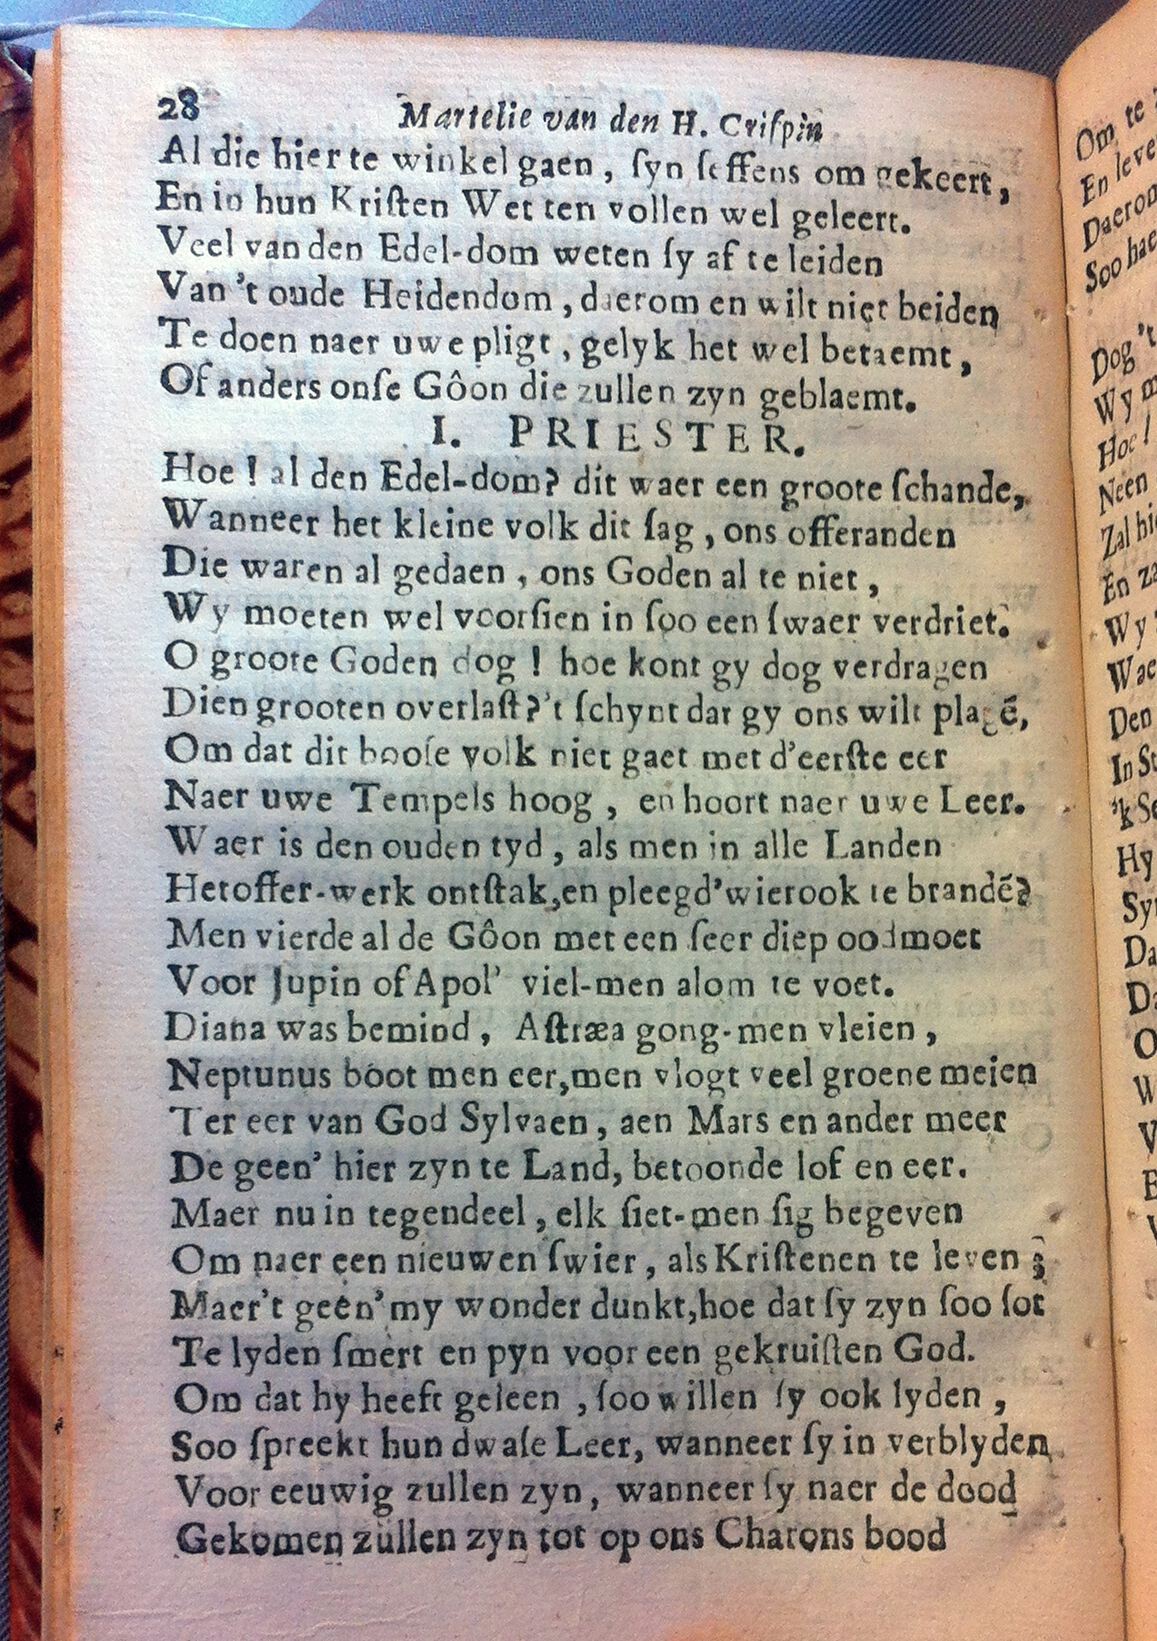 28 Martelie van den H. Criſpin
Al die hier te winkel gaen, ſyn ſeffens om gekeert,
En in hun Kriſten Wet ten vollen wel geleert.
Veel van den Edel-dom weten ſy af te leiden
Van 't oude Heidendom, daerom en wilt niet beiden
Te doen naer uwe pligt, gelyk het wel betaemt,
Of anders onſe Gôon die zullen zyn geblaemt.
I. PRIESTER.
Hoe! al den Edel-dom? dit waer een groote ſchande,
Wanneer het kleine volk dit ſag, ons offeranden
Die waren al gedaen, ons Goden al te niet,
Wy moeten wel voorſien in ſoo een ſwaer verdriet.
O groote Goden dog! hoe kont gy dog verdragen
Dien grooten overlaſt? 't ſchynt dat gy ons wilt plagē,
Om dat dit booſe volk niet gaet met d'eerſte eer
Naer uwe Tempels hoog, en hoort naer uwe Leer.
Waer is den ouden tyd, als men in alle Landen
Het offer-werk ontſtak, en pleegd' wierook te brandē?
Men vierde al de Gôon met een ſeer diep oodmoet
Voor Jupin of Apol' viel-men alom te voet.
Diana was bemind, Aſtræa gong-men vleien,
Neptunus boot men eer, men vlogt veel groene meien
Ter eer van God Sylvaen, aen Mars en ander meer
De geen' hier zyn te Land, betoonde lof en eer.
Maer nu in tegendeel, elk ſiet-men ſig begeven
Om naer een nieuwen ſwier, als Kriſtenen te leven;
Maer't geen' my wonder dunkt, hoe dat ſy zyn ſoo ſot
Te lyden ſmert en pyn voor een gekruiſten God.
Om dat hy heeft geleen, ſoo willen ſy ook lyden,
Soo ſpreekt hun dwaſe Leer, wanneer ſy in verblyden
Voor eeuwig zullen zyn, wanneer ſy naer de dood
Gekomen zullen zyn tot op ons Charons bood
Om te
En leve
Daerom
Soo hae
Dog 't
Wy m
Hoe!
Neen
Zal hi
En za
Wy
Wae
Den
In St
'k Se
Hy
Syn
Da
O
W
V